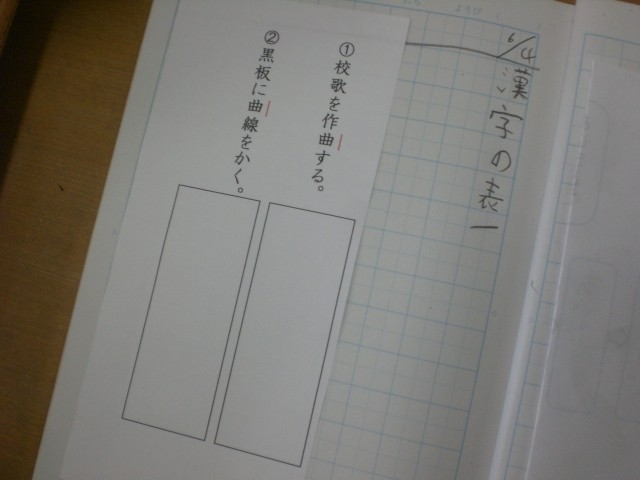 6/4
漢字の表一
①校歌を作曲する。
②黒板に曲線をかく。